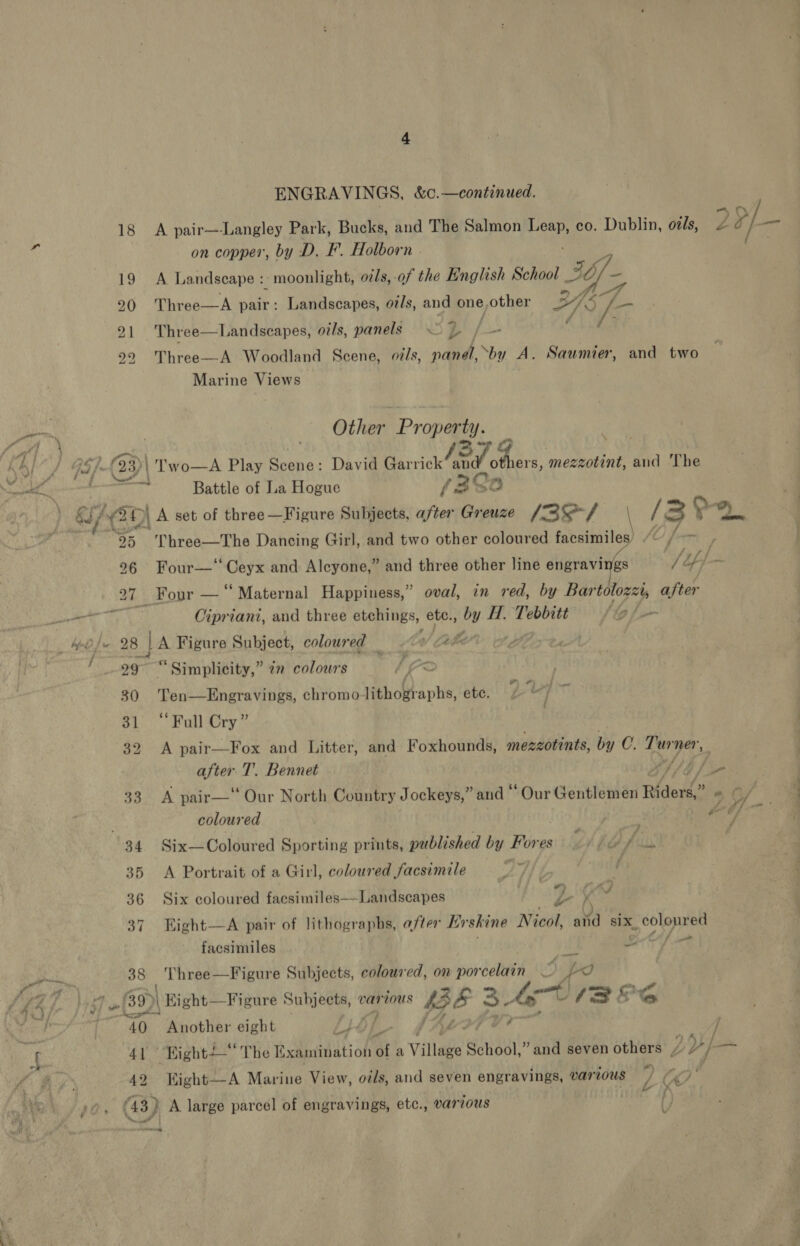 4
ENGRAVINGS, &c.—continued.
18 A pair—Langley Park, Bucks, and The Salmon Leap, co. Dublin, oils,
on copper, by D. F. Holborn
19 A Landscape: moonlight, oils, of the English School 36/-
20 Three—A pair: Landscapes, oils, and one other
21 Three—Landscapes, oils, panels
22 Three—A Woodland Scene, oils, panel, by A. Saumier, and two
Marine Views
Other Property.
1379
(23) Two—A Play Scene: David Garrick and others, mezzotint, and The
Battle of La Hogue 1380
(24) A set of three—Figure Subjects, after Greuze 1381 \ 1382
25 Three—The Dancing Girl, and two other coloured facsimiles
26 Four—“Ceyx and Alcyone,” and three other line engravings
27 Four—“Maternal Happiness,” oval, in red, by Bartolozzi, after
Cipriani, and three etchings, etc., by H. Tebbitt
28 A Figure Subject, coloured
29 “Simplicity,” in colours
30 Ten—Engravings, chromo-lithographs, etc.
31 “Full Cry”
32 A pair—Fox and Litter, and Foxhounds, mezzotints, by C. Turner,
after T. Bennet
33 A pair—“Our North Country Jockeys,” and “Our Gentlemen Riders,”
coloured
34 Six—Coloured Sporting prints, published by Fores
35 A Portrait of a Girl, coloured facsimile
36 Six coloured facsimiles—Landscapes
37 Eight—A pair of lithographs, after Erskine Nicol, and six coloured
facsimiles
38 Three—Figure Subjects, coloured, on porcelain
(39) Eight—Figure Subjects, various
40 Another eight
41 Eight—“The Examination of a Village School,” and seven others
42 Eight—A Marine View, oils, and seven engravings, various
(43) A large parcel of engravings, etc., various